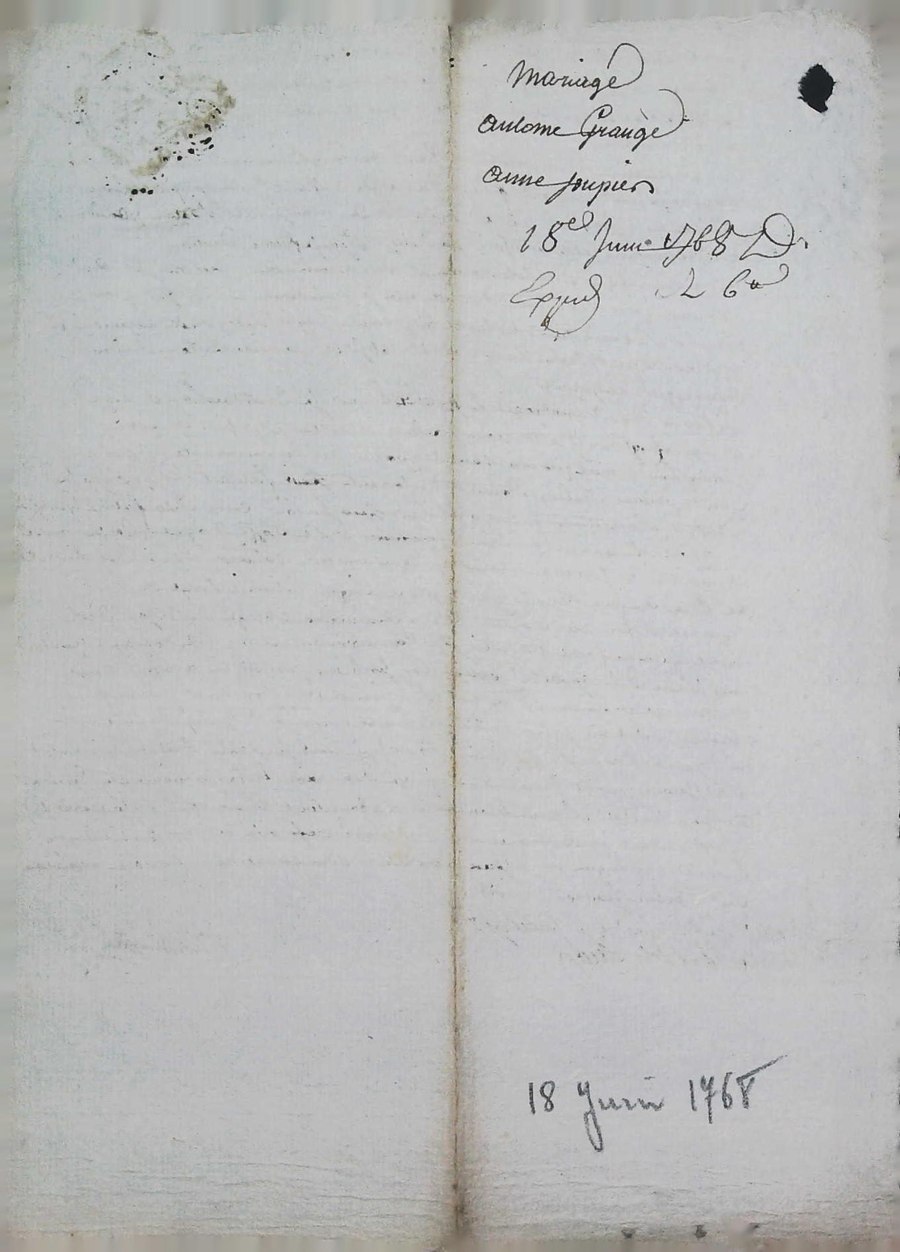 Mariage
antome Grange
anne Joupier
18e Juin 1768 D.
Expié 2 6
18 Juin 1768